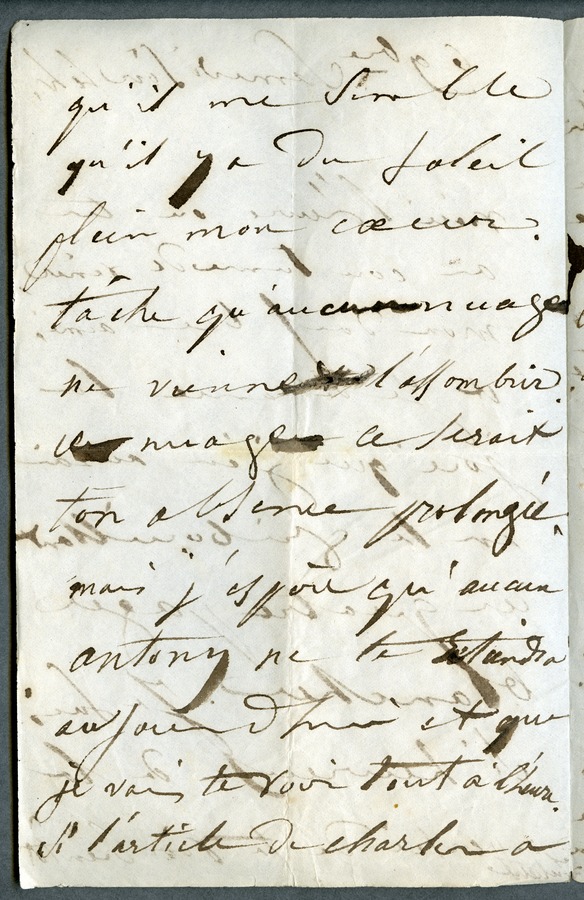 qu'il me semble
qu'il y a du soleil
plein mon cœur.
tâche qu'aucun nuage
ne vienne l'assombrir
ce nuage ce serait
ton absence prolongée.
mais j'espère qu'aucun
antony ne te retiendra
aujourd'hui et que
je vais te voir tout à l'heure.
Si l'article de charles a